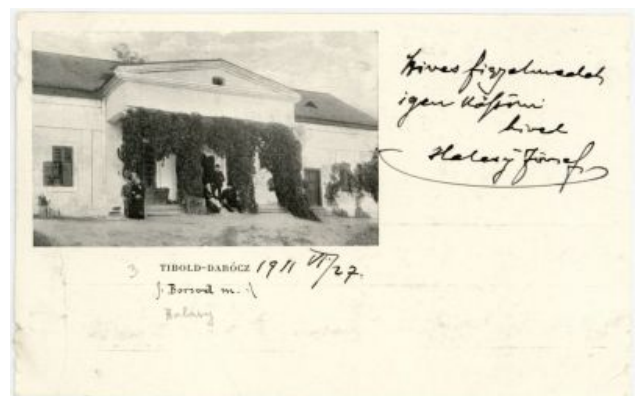 Szives figyelmedet
igen köszöni
hived
Halasy József
3 TIBOLD-DARÓCZ 1911 VI/27.
/: Borsod m. :/
Halasy